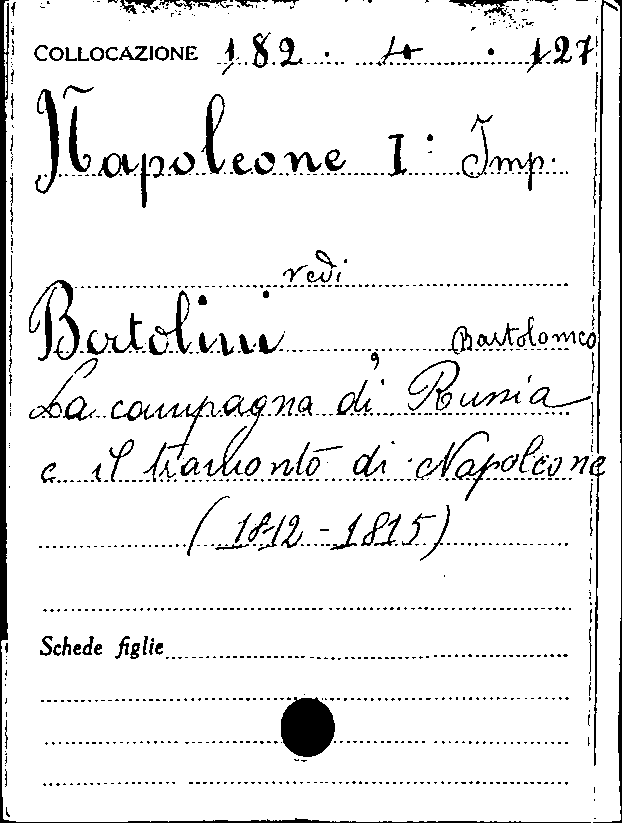 COLLOCAZIONE 182 · 4 · 127
Napoleone I: Imp.
vedi
Bertolini Bartolomeo
La campagna di Russia
e il tramonto di Napoleone
(1812-1815)
Schede figlie